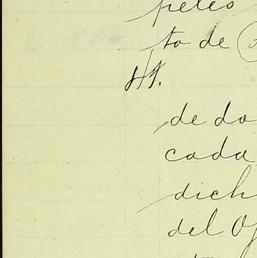 to de
41.
de do
cada
dich
del Of